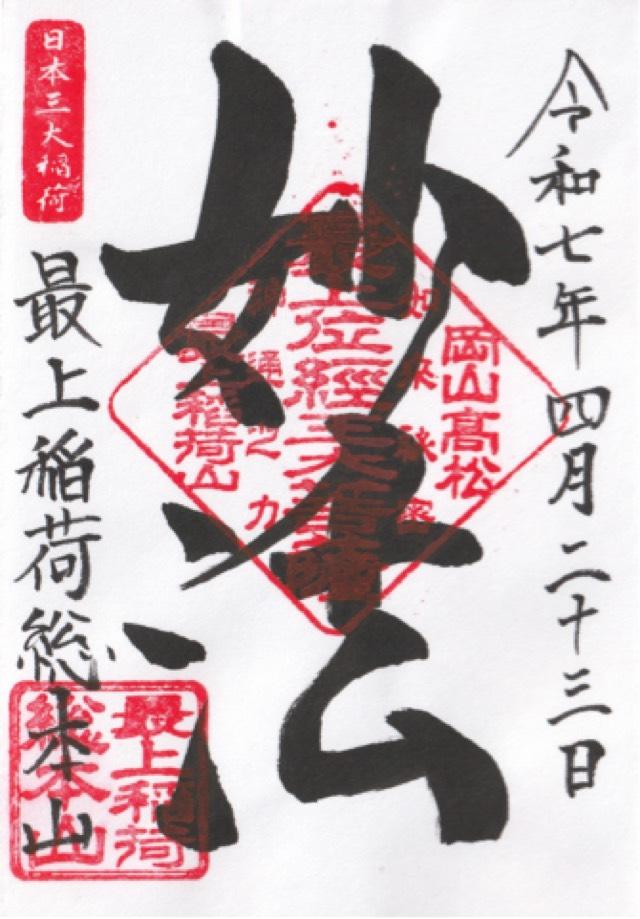 令和七年四月二十三日
妙法
岡山高松
最上位經王大菩薩
如来秘密
神通之力
最上稲荷山
日本三大稲荷
最上稲荷総本山
最上稲荷
総本山